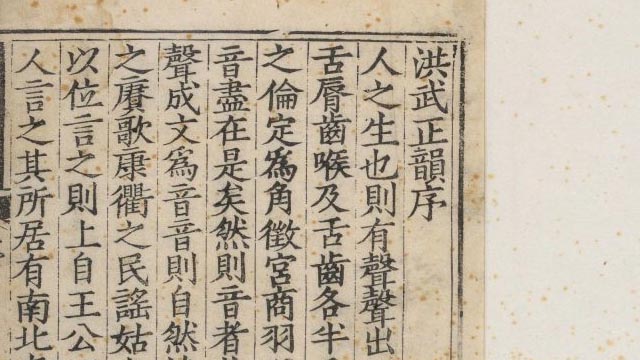 洪武正韻序
人之生也則有聲聲出
舌脣齒喉及舌齒各半
之倫定為角徵宮商羽
音盡在是矣然則音者
聲成文爲音音則自然
之賡歌康衢之民謠姑
以位言之則上自王公
人言之其所居有南北